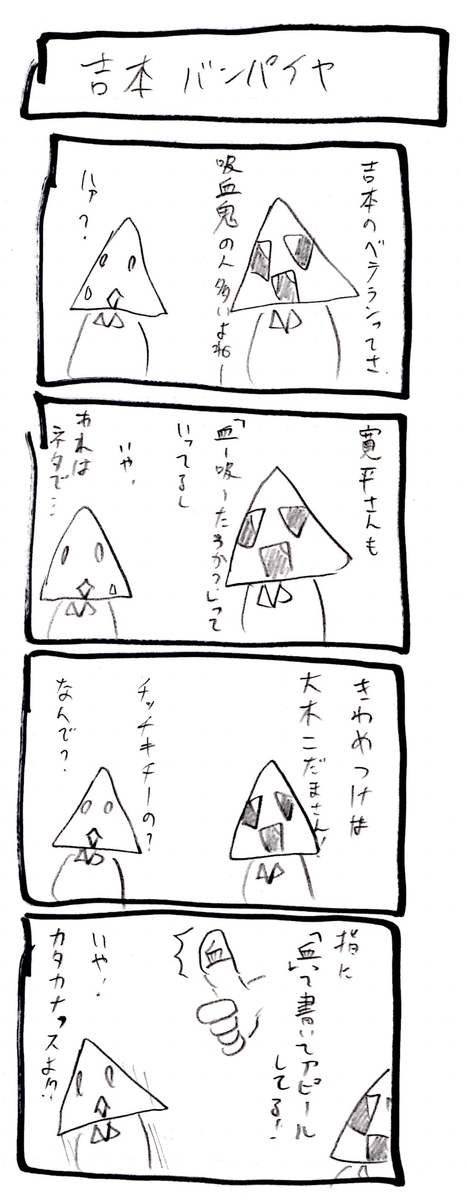 吉本 バンパイヤ
吉本のベテランってさ
吸血鬼の人多いよねー
ハァ?
寛平さんも
「血ー吸ーたろかっ」って
いってるし
いや、
あれは
ネタで…
きわめつけは
大木こだまさん!
チッチキチーの?
なんで?
指に
「血」て書いてアピール
してる!
血
いや!
カタカナッスよ!?